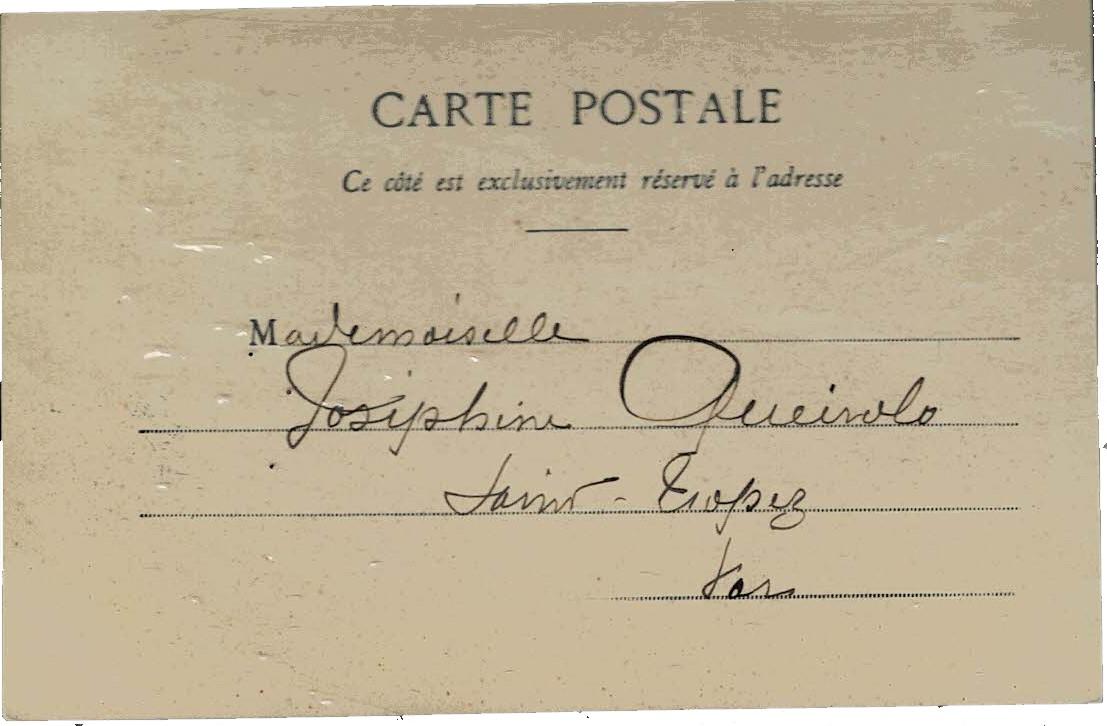 CARTE POSTALE
Ce côté est exclusivement réservé à l'adresse
Mademoiselle
Joséphine Queirolo
Saint-Tropez
Var